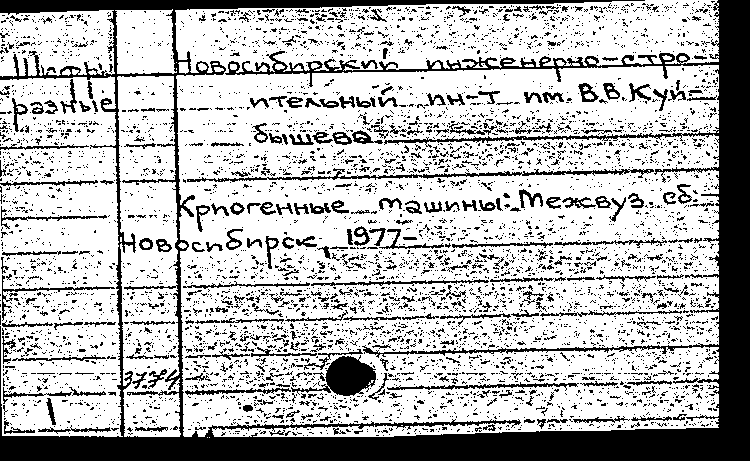 Шифры
разные
Новосибирский инженерно-стро-
ительный ин-т им. В.В. Куй-
бышева
Криогенные машины: Межвуз. сб.
Новосибирск, 1977-